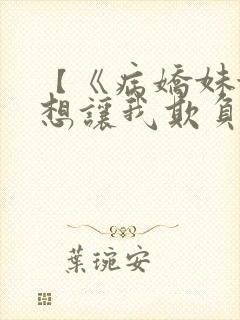 【《病嬌妹
想讓我欺負
葉琬安